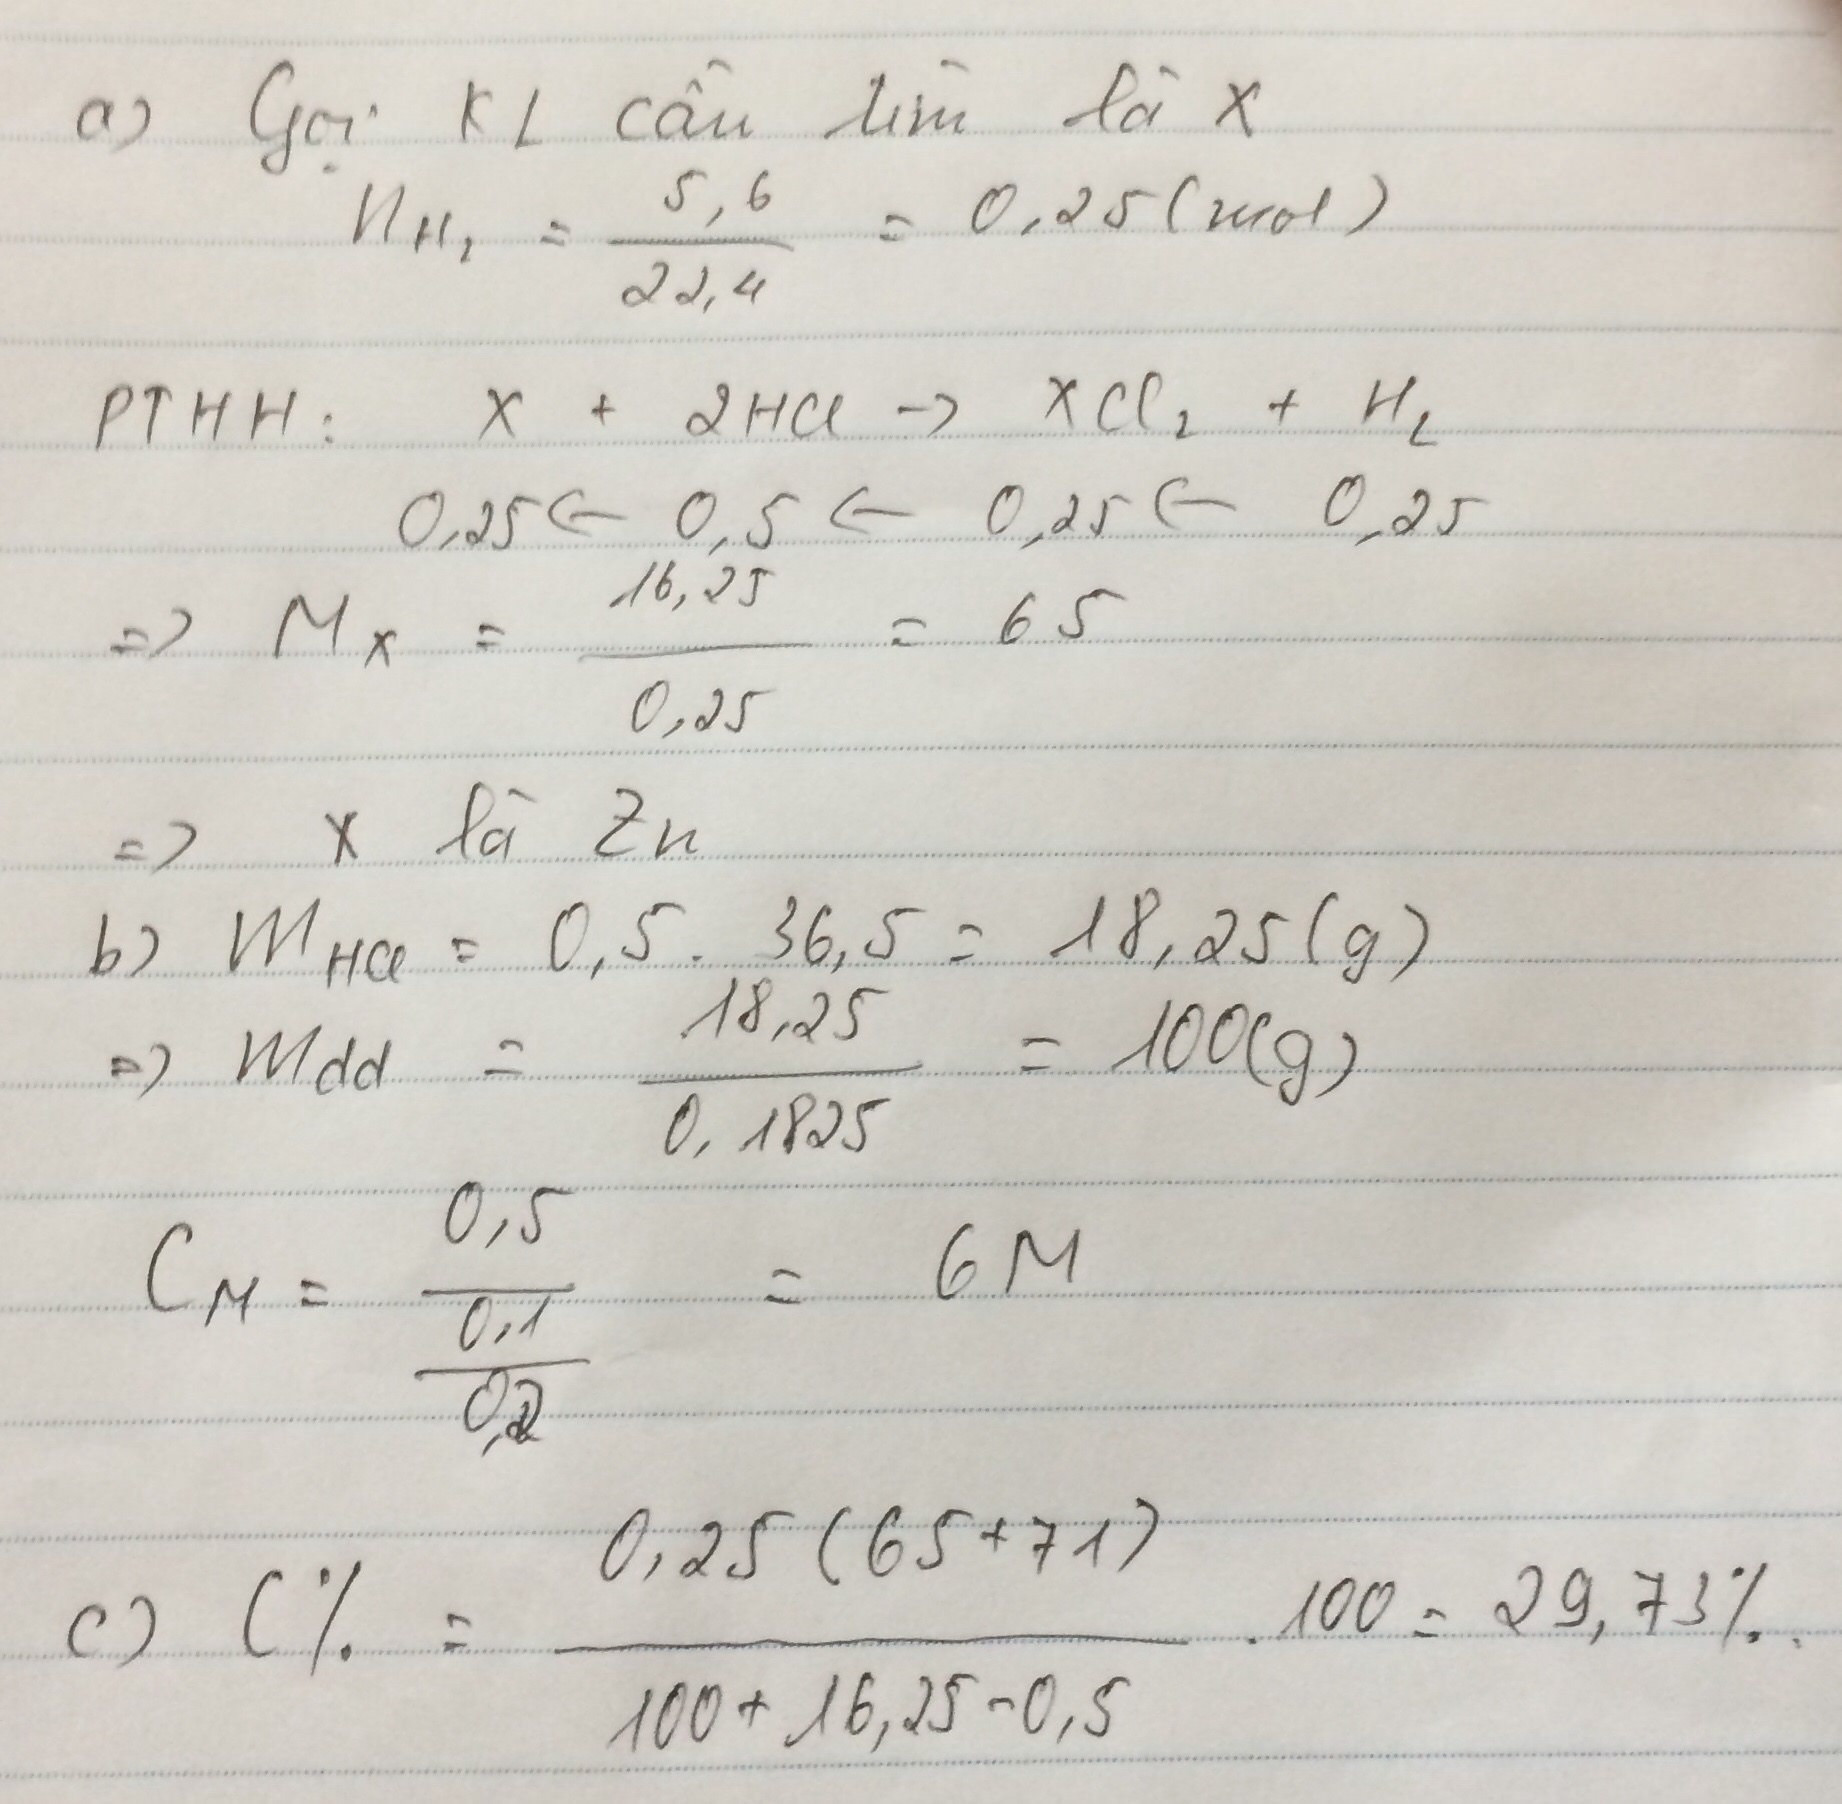 a) Gọi KL cần tìm là X
nH2 = 5,6 / 22,4 = 0,25 (mol)
PTHH: X + 2HCl -> XCl2 + H2
0,25 <- 0,5 <- 0,25 <- 0,25
=> Mx = 16,25 / 0,25 = 65
=> X là Zn
b) mHCl = 0,5 . 36,5 = 18,25 (g)
=> mdd = 18,25 / 0,1825 = 100 (g)
CM = 0,5 / 0,1 / 0,2 = 6M
c) C% = 0,25 (65+71) / 100 + 16,25 - 0,5 . 100 = 29,73%.